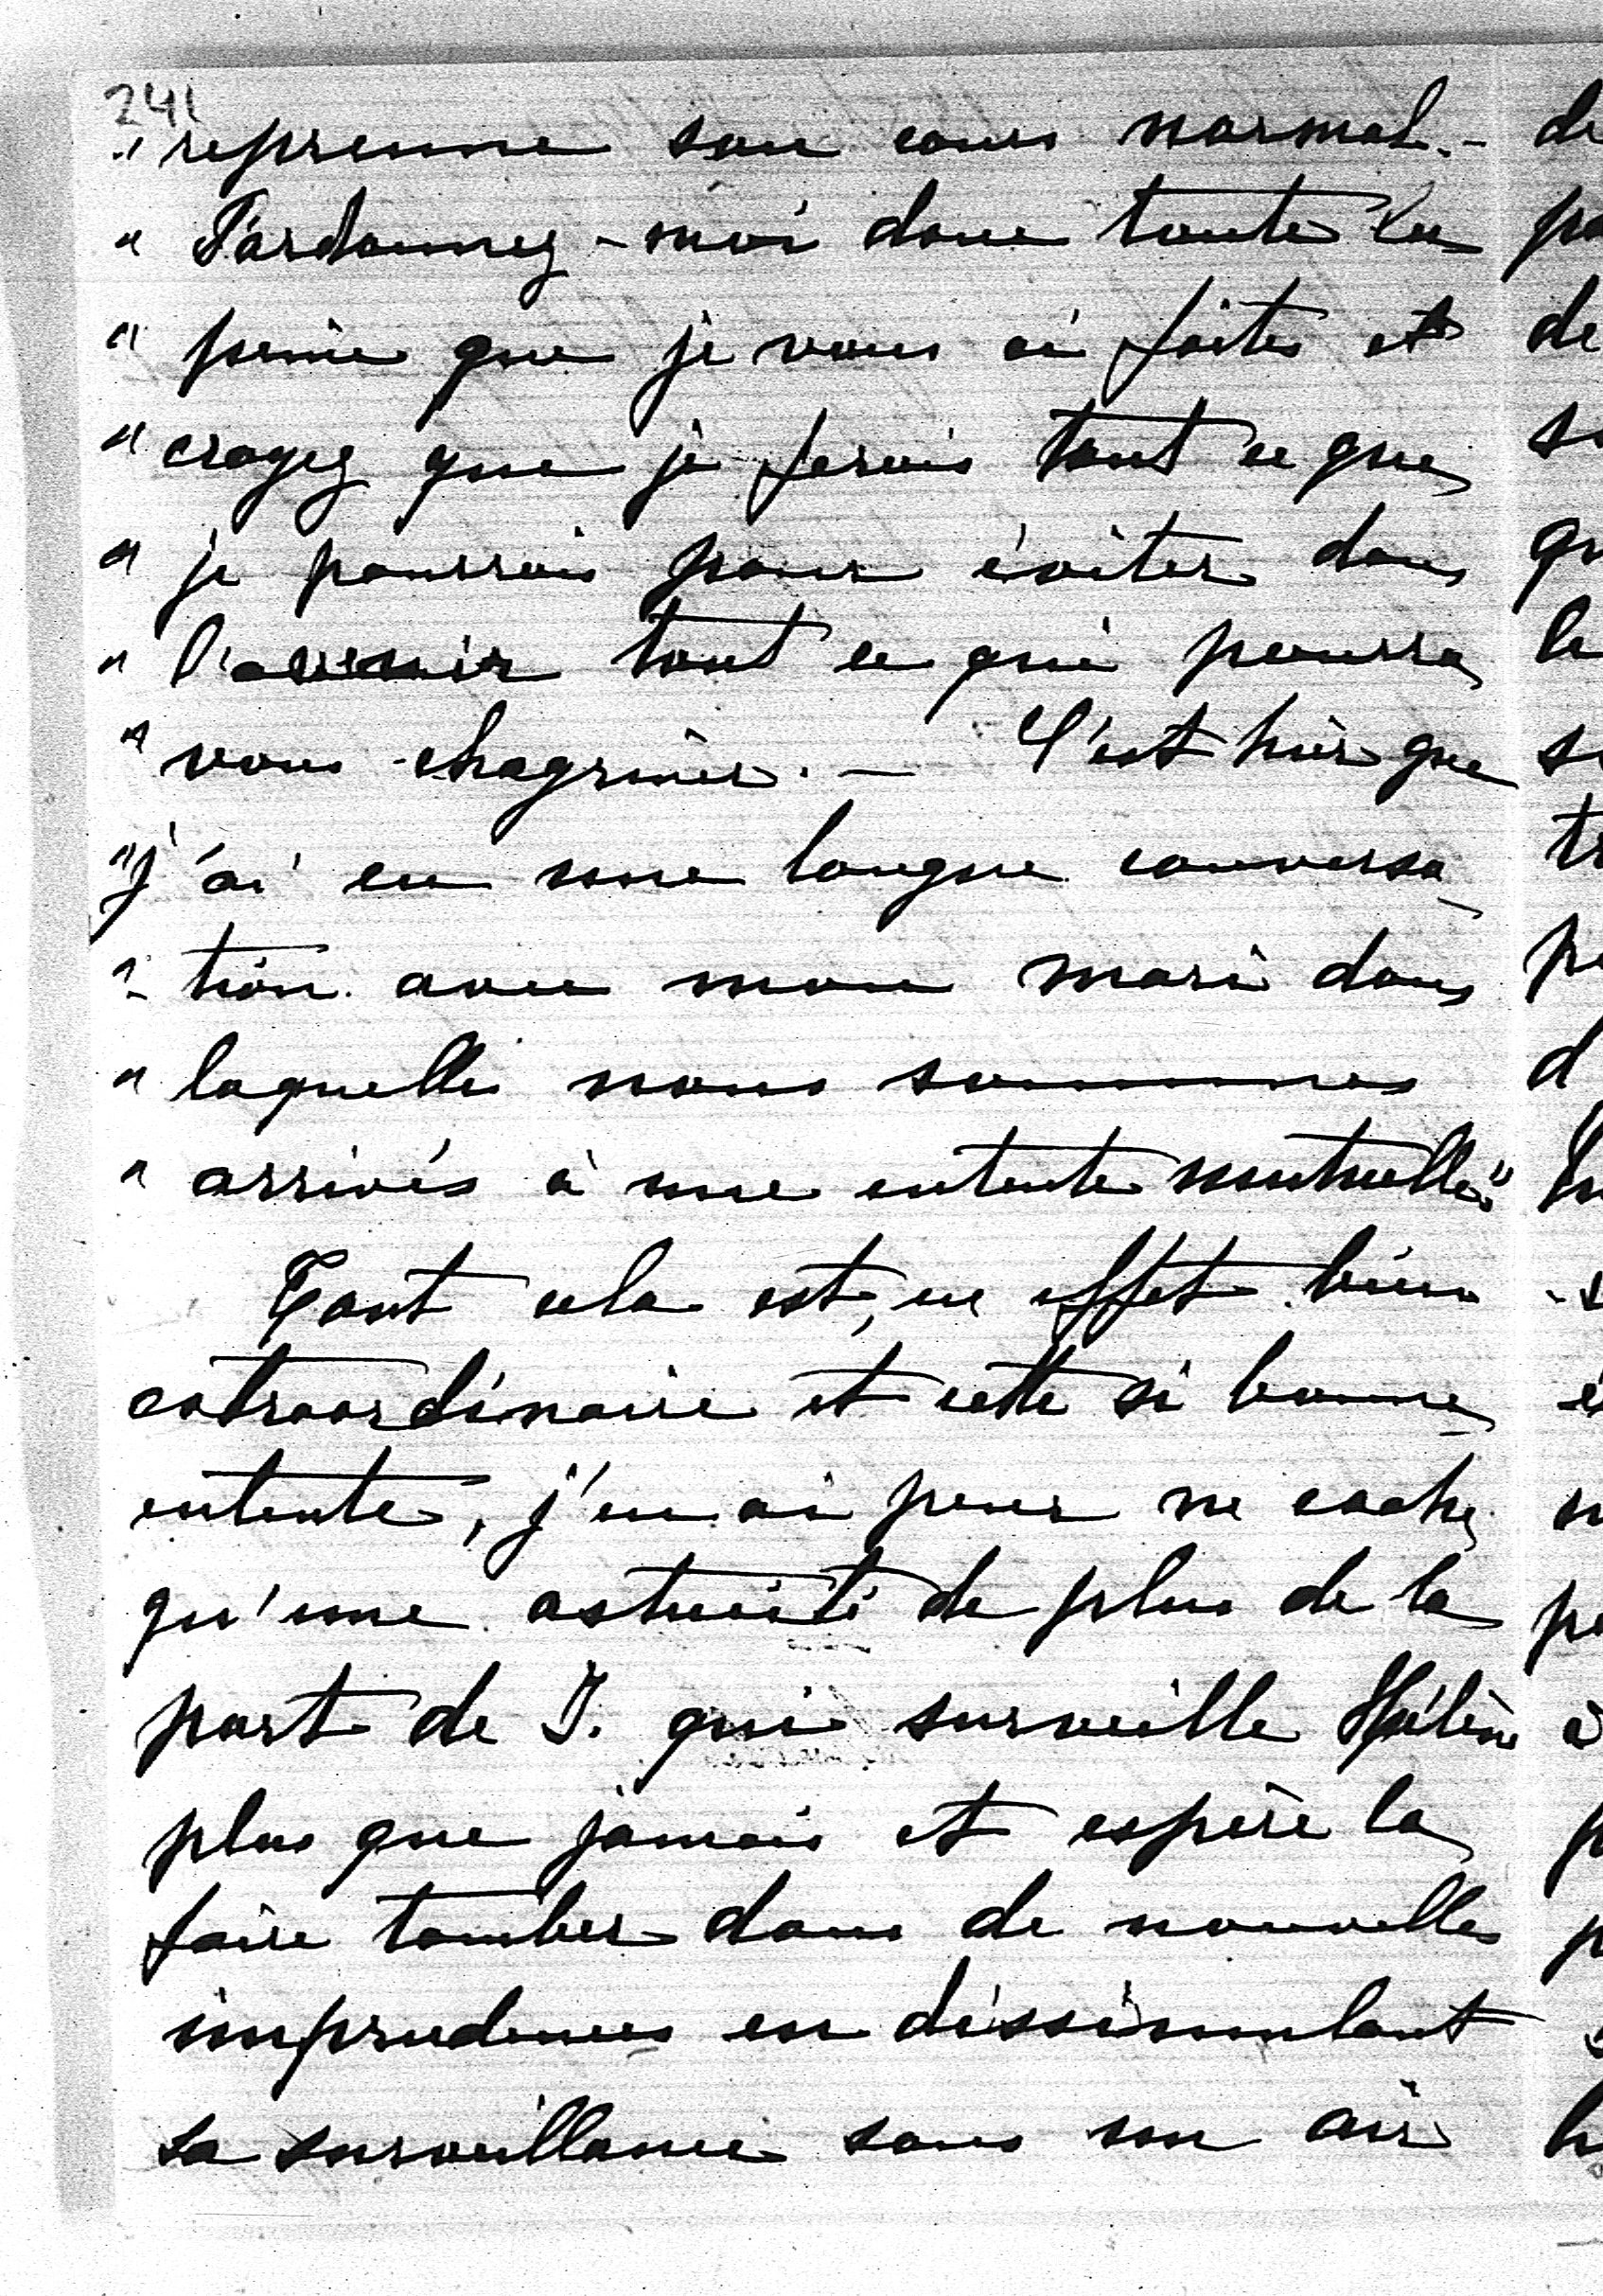 241
" reprenne son cours normal. -
" Pardonnez-moi donc toute la
" peine que je vous ai faite et
" croyez que je ferais tout ce que
" je pourrais pour éviter dans
" l'avenir tout ce qui pourra
" vous chagriner. - C'est hier que
" j'ai eu une longue conversa-
" tion avec mon mari dans
" laquelle nous sommes
" arrivés à une entente mutuelle."
Tout cela est, en effet bien
extraordinaire et cette si bonne
entente, j'en ai peur ne cache
qu'une astucité de plus de la
part de J. qui surveille Hélène
plus que jamais et espère la
faire tomber dans de nouvelles
imprudences en dissimulant
sa surveillance sous un air